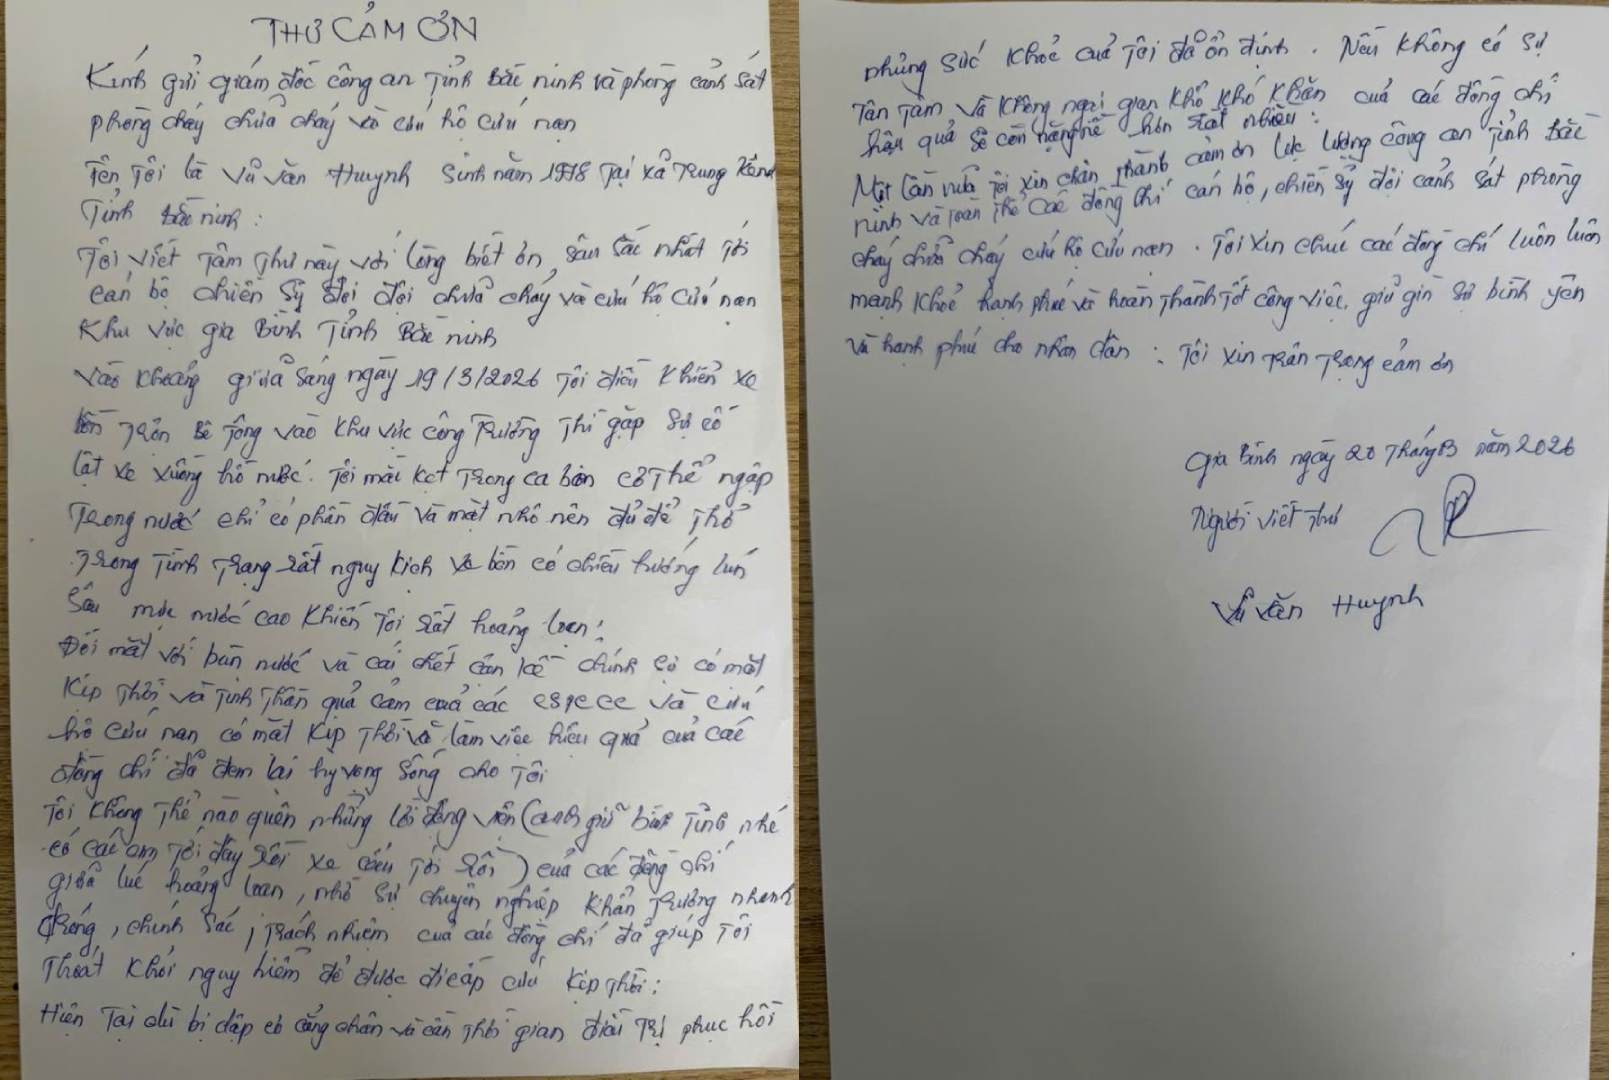 THƯ CẢM ƠN
Kính gửi giám đốc công an Tỉnh Bắc ninh và phòng cảnh sát
phòng cháy chữa cháy và cứu hộ cứu nạn
Tên Tôi là Vũ Văn Huynh Sinh năm 1978 Tại xã Trung Kênh
Tỉnh Bắc ninh:
Tôi viết Tâm Thư này với lòng biết ơn, sâu sắc nhất Tới
cán bộ chiến Sỹ đội đội chữa cháy và cứu hộ cứu nạn
Khu vực gia Bình Tỉnh Bắc ninh
vào khoảng giữa sáng ngày 19/3/2026 Tôi điều khiển xe
bồn Trộn Bê Tông vào khu vực công Trường Thì gặp sự cố
lật xe xuống hố nước. Tôi mắc kẹt Trong ca bin cơ Thể ngập
Trong nước chỉ có phần đầu và mặt nhô nên đủ để Thở
Trong Tình Trạng rất nguy kịch xe bồn có chiều hướng lún
Sâu mực nước cao khiến Tôi rất hoảng loạn!
Đối mặt với bùn nước và cái chết cận kề chính sự có mặt
kịp Thời và Tinh Thần quả cảm của các cspccc và cứu
hộ cứu nạn có mặt kịp Thời và làm việc hiệu quả của các
đồng chí đã đem lại hy vọng Sống cho Tôi
Tôi không Thể nào quên những lời động viên (anh giữ bình Tĩnh nhé
có các em Tới đây rồi xe cẩu Tới rồi) của các đồng chí
giữa lúc hoảng loạn, nhờ sự chuyên nghiệp khẩn Trương nhanh
chóng, chính xác, Trách nhiệm của các đồng chí đã giúp Tôi
Thoát khỏi nguy hiểm để được đi cấp cứu kịp Thời:
Hiện Tại dù bị dập cơ cẳng chân và cần Thời gian điều Trị phục hồi
nhưng Sức khoẻ của Tôi đã ổn định. Nếu không có sự
Tận Tâm và không ngại gian khổ khó khăn của các đồng chí
hậu quả sẽ còn nặng nề hơn rất nhiều:
Một lần nữa Tôi xin chân Thành cảm ơn lực lượng công an Tỉnh Bắc
ninh và Toàn Thể các đồng chí cán bộ, chiến sỹ đội cảnh sát phòng
cháy chữa cháy cứu hộ cứu nạn. Tôi xin chúc các đồng chí luôn luôn
mạnh khoẻ hạnh phúc và hoàn Thành Tốt công việc, giữ gìn sự bình yên
và hạnh phúc cho nhân dân: Tôi xin Trân Trọng cảm ơn
Gia Bình ngày 20 Tháng 3 năm 2026
Người viết Thư
Vũ Văn Huynh